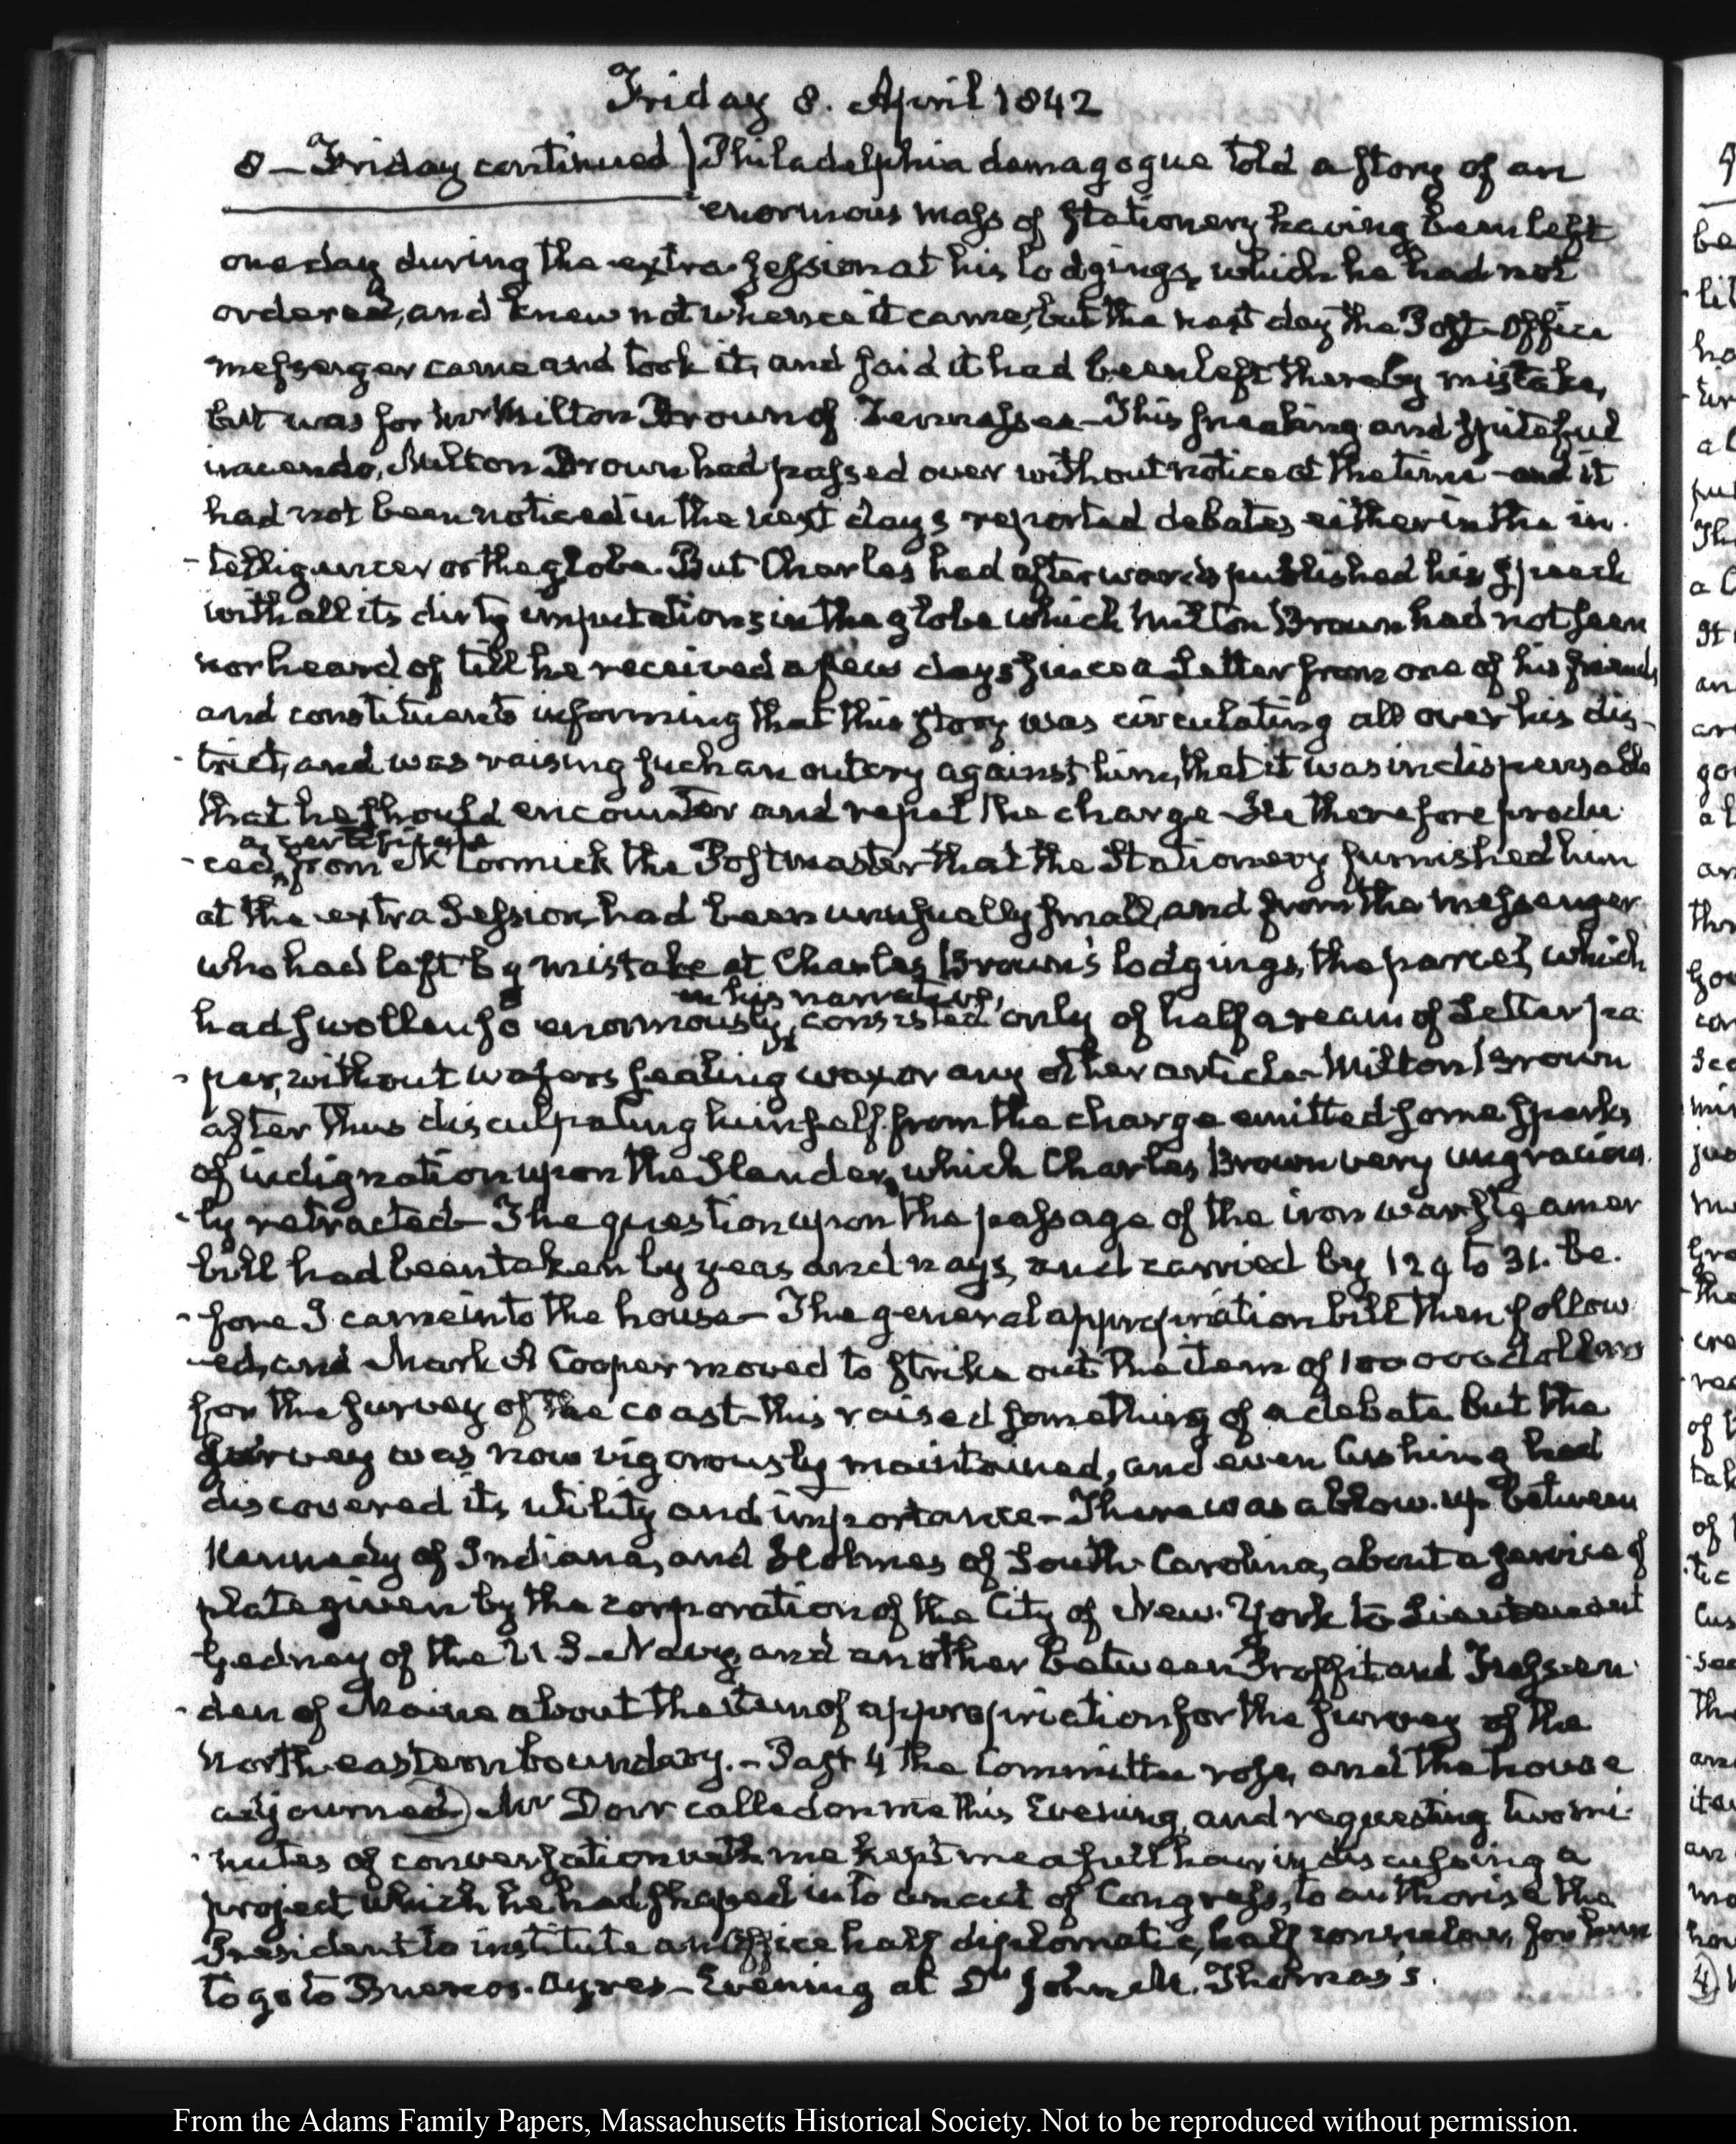 Friday 8. April 1842
8 – Friday continued) Philadelphia demagogue told a story of an
enormous mass of Stationery having been left
one day during the extra-session at his lodgings, which he had not
ordered, and knew not whence it came; but the next day the Post-Office
messenger came and took it, and said it had been left there by mistake,
but was for Mr Milton Brown of Tennessee – This sneaking and spiteful
inuendo, Milton Brown had passed over without notice at the time – and it
had not been noticed in the next days reported debates either in the in-
-telligencer or the globe. But Charles had afterwards published his Speech
with all its dirty imputations in the globe which Milton Brown had not seen
nor heard of till he received a few days since a Letter from one of his friends
and constituents informing that this story was circulating all over his dis-
-trict, and was raising such an outcry against him, that it was indispensable
that he should encounter and repel the charge – He therefore produ-
a certificate
-ced, from McCormick the Postmaster that the Stationery furnished him
at the extra Session had been unusually small, and from the messenger
who had left by mistake at Charles Brown's lodgings, the parcel, which
in his narrative,
had swollen so enormously, consisted only of half a ream of Letter pa
-per, without wafers sealing wax or any other article – Milton Brown
after thus disculpating himself from the charge emitted some sparks
of indignation upon the Slander, which Charles Brown very ungracious-
-ly retracted – The question upon the passage of the iron war steamer
bill had been taken by yeas and nays, and carried by 129 to 31. be-
-fore I came into the house – The general appropriation bill then follow-
-ed, and Mark A Cooper moved to strike out the item of 100 000 dollars
for the survey of the coast – this raised something of a debate but the
survey was now vigorously maintained, and even Cushing had
discovered its utility and importance – There was a blow-up between
Kennedy of Indiana, and Holmes of South-Carolina, about a service of
plate given by the corporation of the City of New-York to Lieutenant
Gedney of the U S. Navy, and another between Proffit and Fessen-
-den of Maine about the item of appropriation for the survey of the
North-eastern boundary. – Past 4 the Committee rose, and the house
adjourned) Mr Dorr called on me this Evening, and requesting two mi-
-nutes of conversation with me kept me a full hour in discussing a
project which he had shaped into an act of Congress, to authorise the
President to institute an Office half diplomatic, half consular, for him
to go to Buenos-Ayres – Evening at Dr John M. Thomas's.
From the Adams Family Papers, Massachusetts Historical Society. Not to be reproduced without permission.